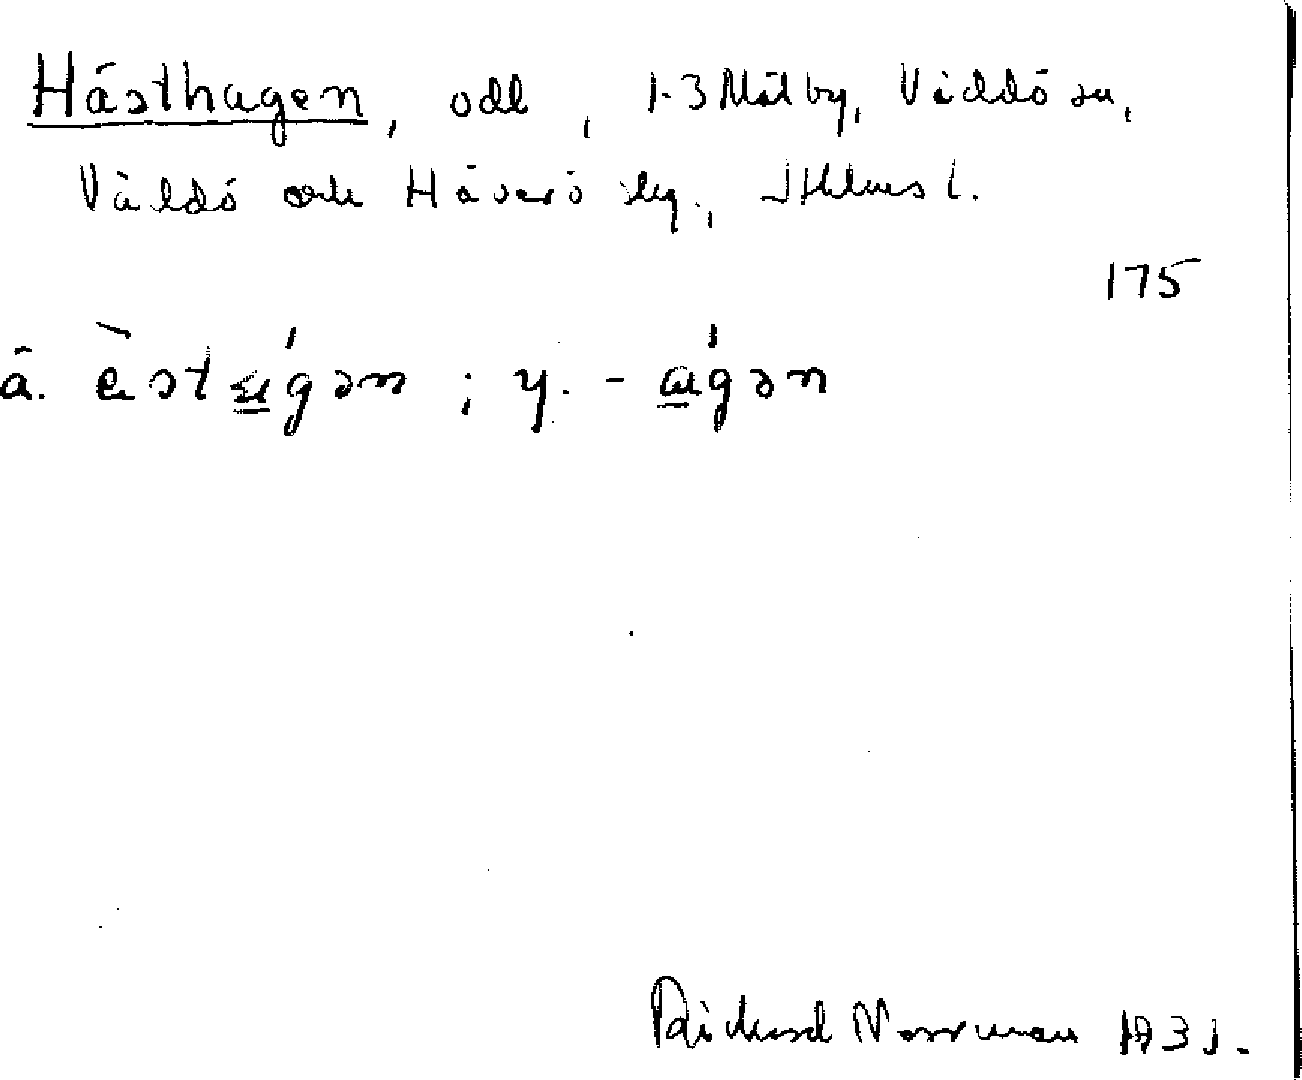 Hästhagen, odl, 1-3 Målby, Väddö sn,
Väddö och Häverö skg., Sthlms l.
175
ä. èstɑ́gən; y. - ɑ́gən
Rickard Norrman 1931.